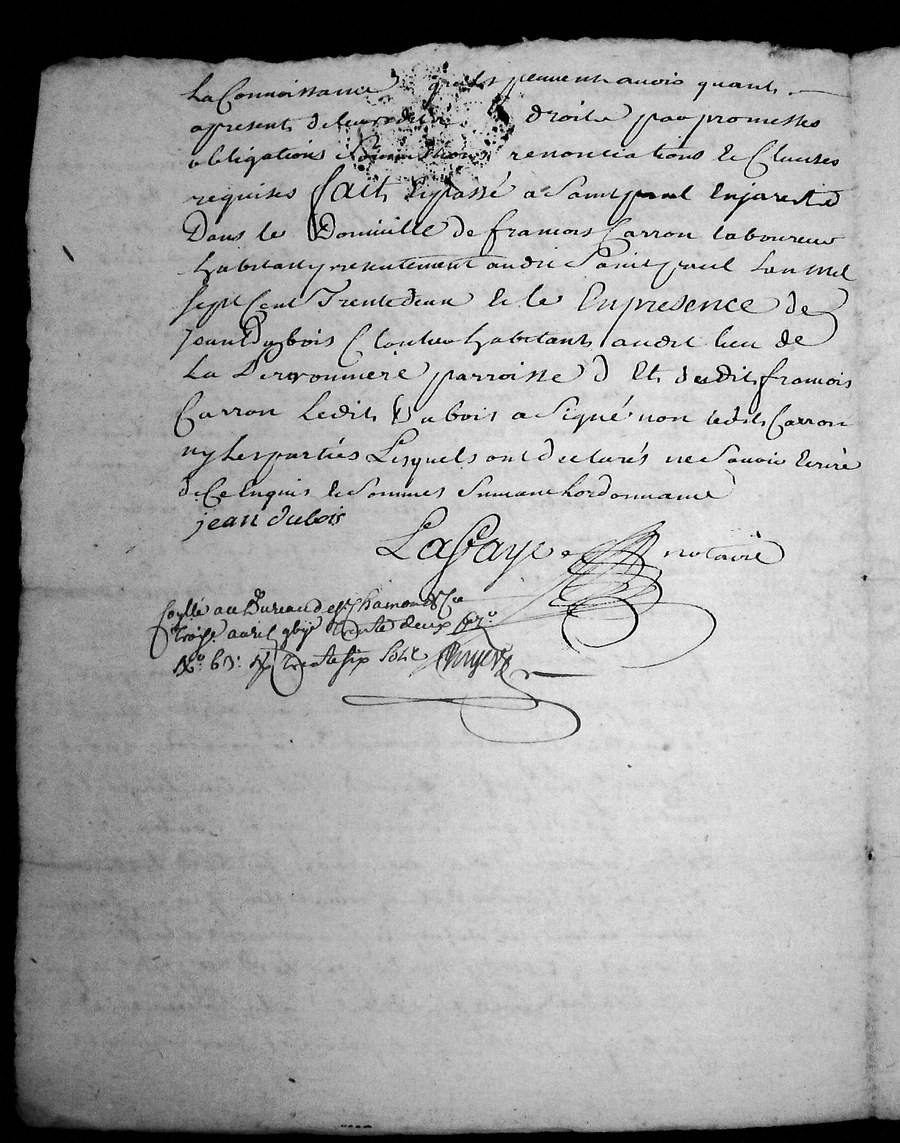 La Connoissance qu'ils peuvent avoir quant
apresent de leurs droits par promesses
obligations soumissions renonciations et Clauses
requises fait et passé a Saint paul Enjarest
Dans le Domicille de francois Carron laboureur
habitant presentement audit Saint paul Lan mil
sept Cent Trente deux Et le En presence de
Jean Dubois Cloutier habitant audit lieu de
La parroisse d Et dudit francois
Carron Ledit Dubois a Signé non ledit Carron
ny Les parties Lesquels ont declarés ne Savoir Ecrire
de Ce Enquis et Sommés Suivant Lordonnance
jean dubois
LaFaye notaire
Collé au Bureau de St Chamond Ce
trois avril trente deux
No. 63 trente six sols